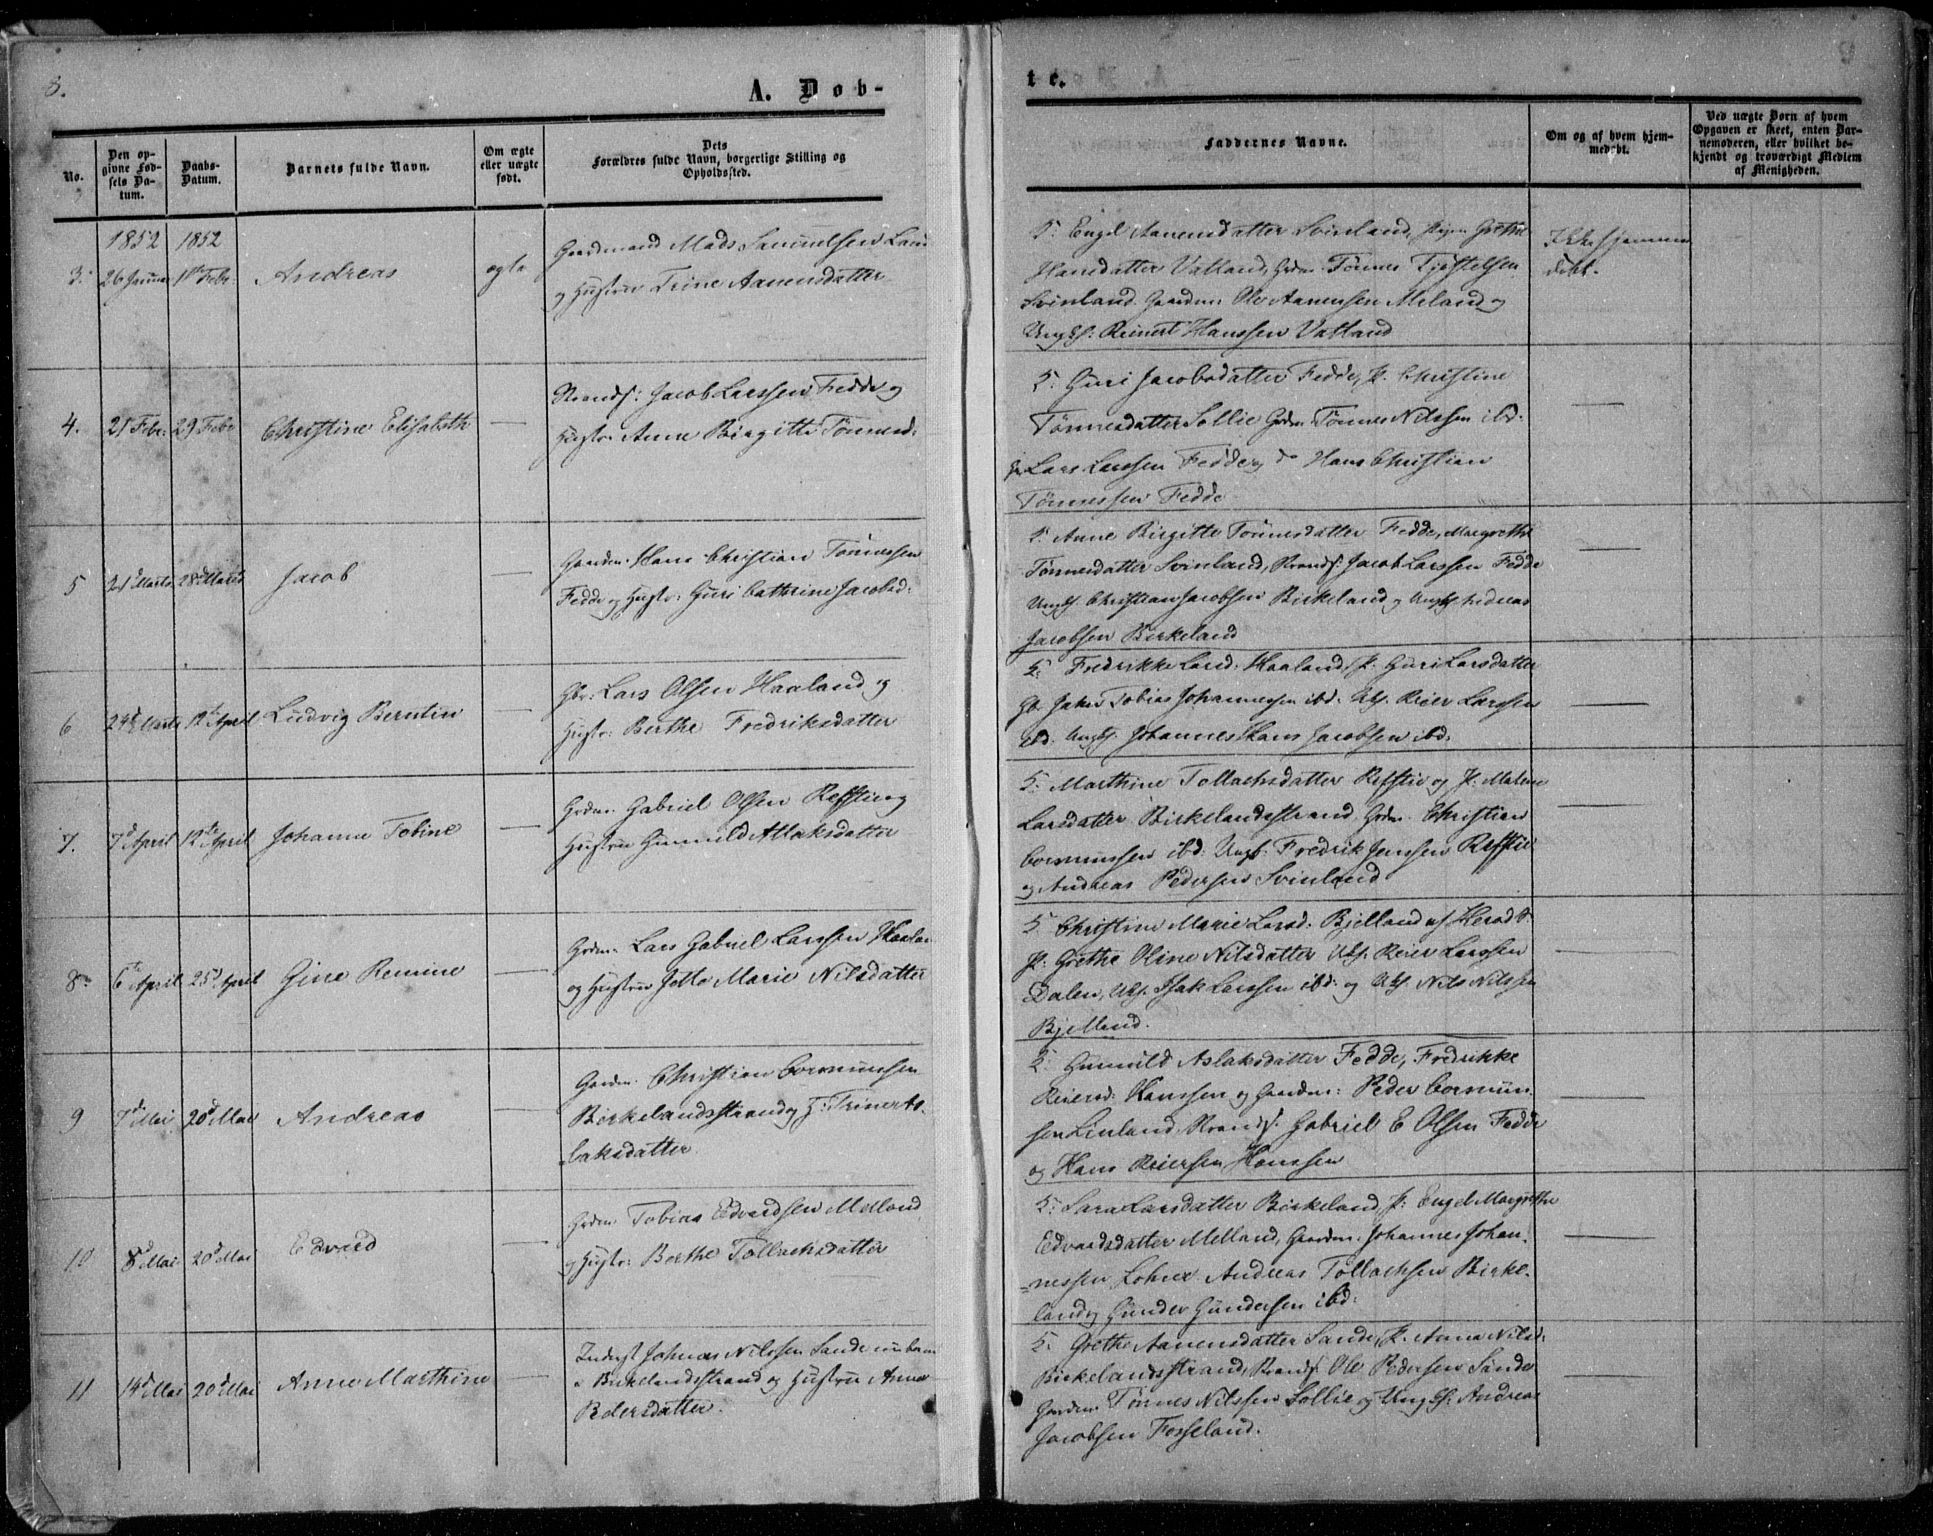 8.
A. Døb-
No.
Den op-
givne Fød-
sels Da-
tum.
Daabs-
Datum.
Barnets fulde Navn.
Om ægte
eller uægte
født.
Dets
Forældres fulde Navn, borgerlige Stilling og
Opholdssted.
1852 1852
3. 26 Januar 1ste Febr. Andreas ægte
Gaardmand Mads Samuelsen
og Hustru Trine Aanensdatter
4. 21 Febr. 29 Febr. Christine Elisabeth —
Strands: Jacob Larssen Fedde og
Hustr: Anne Birgitte Tönnesd:
5 21d Marts 28d Marts Jacob —
Gaardm. Hans Christian Tönnessen
Fedde og Hustr: Guri Cathrine Jacobsd:
6 24d Marts 12te April Ludvig Berntin —
Gbr: Lars Olsen Haaland og
Hustr: Berthe Fredriksdatter
7. 7d April 12te April Johanne Tobine —
Grdm. Gabriel Olsen Refstie og
Hustru Gunnuld Aslaksdatter
8. 6te April 25d April Gine Remine —
Grdm. Lars Gabriel Larssen
og Hustru Marie Nilsdatter
9 7d Mai 20d Mai Andreas —
Gardm. Christian Cormunssen
Birkelandsstrand og H: Trine As-
laksdatter
10 8d Mai 20d Mai Edvard —
Grdm. Tobias Edvardsen Melland
og Hustr: Berthe Tollachsdatter
11 14d Mai 20d Mai Anne Marthine —
Inderst Johnas Nilssen Sande
Birkelandsstrand og Hustru Anne
Pedersdatter.
te.
Faddernes Navne.
Om og af hvem hjem-
medøbt.
Ved uægte Børn af hvem
Opgaven er skeet, enten Bar-
nemoderen, eller hvilket be-
kjendt og troværdigt Medlem
af Menigheden.
5: Engel Aanensdatter Svinland, Pigen Grethe
Hansdatter Vatland, Grdm. Tönnes Tjöstelsen
Svinland. Gaardm: Ole Aanensen Meland og
Ungk: Reinert Hanssen Vatland
Ikke hjemme
döbt.
5: Guri Jacobsdatter Fedde, P. Christine
Tönnesdatter Sollie Grdm. Tönnes Nilssen ibd.
Lars Larssen Fedde og do Hans Christian
Tönnessen Fedde
—
5: Anne Birgitte Tönnesdatter Fedde, Margrethe
Tönnesdatter Svinland, Strands: Jacob Larssen Fedde
Ungk: Christian Jacobsen Birkeland og Ungk: Andreas
Jacobsen Birkeland
—
5: Fredrikke Larsd: Haaland, P. Guri Larsdatter
Tobias Johannessen ibd. Uk. Reier Larssen
ibd. Ungk. Johannes Hans Jacobsen ibd:
—
5: Marthine Tollachsdatter Refstie og P: Malene
Larsdatter Birkelandsstrand. Grdm. Christian
Cormunssen ibd: Ungk. Fredrik Jenssen Refstie
og Andreas Pedersen Svinland
—
5 Christine Marie Larsd. Bjelland af Herad S.
P: Grethe Oline Nilsdatter Uk. Reier Larssen
Dalen, Uk. Isak Larssen ibd: og Uk. Nils Nilssen
Bjelland.
—
5: Gunnuld Aslaksdatter Fedde, Fredrikke
Reiersd: Hanssen og Gaardm: Peder Cormun-
sen Linland, Strands: Gabriel E Olsen Fedde
og Hans Reiersen Hanssen
—
5: Sara Larsdatter Birkeland, P: Engel Margrethe
Edvardsdatter Melland, Gaardm: Johannes Johan-
nessen Lohne Andreas Tollachsen Birke-
land og Gunder Gundersen ibd:
—
5: Grethe Aanensdatter Sande, P. Anna Nilsd:
Birkelandsstrand, Strands: Ole Pedersen Sande
Gaardm: Tönnes Nilssen Sollie og Ungk: Andreas
Jacobsen Fosseland.